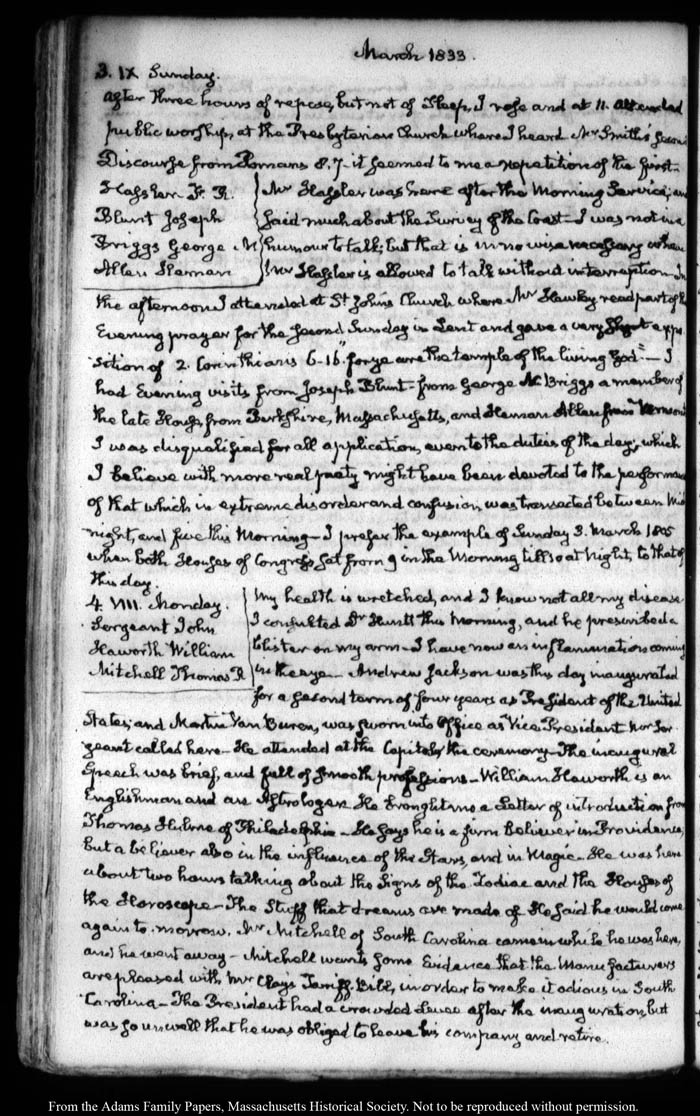 March 1833.
3. IX Sunday.
After three hours of repose, but not of Sleep, I rose and at 11. attended
public worship, at the Presbyterian Church where I heard Mr Smith's second
Discourse from Romans 8.7 it seemed to me a repetition of the first.
Hassler F. R.
Blunt Joseph
Briggs George N
Allen Heman
Mr Hassler was here after the Morning Service, and
said much about the Survey of the Coast. I was not in a
humour to talk; but that is in no wise necessary when
Mr Hassler is allowed to talk without interruption. In
the afternoon I attended at St Johns Church where Mr Hawley read part of the
Evening prayer for the second Sunday in Lent and gave a very short expo
sition of 2. Corinthians 6-16 "for ye are the temple of the living God" — I
had Evening visits from Joseph Blunt - from George N. Briggs a member of
the late House from Berkshire, Massachusetts, and Heman Allen from Vermont
I was disqualified for all application, even to the duties of the day; which
I believe with more real piety might have been devoted to the performance
of that which in extreme disorder and confusion was transacted between mid
night, and five this Morning — I prefer the example of Sunday 3. March 1805
when both Houses of Congress sat from 9 in the Morning till 10 at Night, to that of
this day.
4. VIII. Monday.
Sergeant John
Haworth William
Mitchell Thomas R
My health is wretched, and I know not all my disease
I consulted Dr Huntt this morning, and he prescribed a
blister on my arm - I have now an inflammation coming
in the eye - Andrew Jackson was this day inaugurated
for a second term of four years as President of the United
States, and Martin Van Buren, was sworn into Office as Vice President Mr Ser
geant called here - He attended at the Capitol the ceremony - The inaugural
Speech was brief, and full of smooth professions - William Haworth is an
Englishman and an Astrologer. He brought me a Letter of introduction from
Thomas Hulme of Philadelphia - He says he is a firm believer in Providence,
but a believer also in the influence of the Stars, and in Magic - He was here
about two hours talking about the Signs of the Zodiac and the Houses of
the Horoscope - The Stuff that dreams are made of He said he would come
again to-morrow. Mr Mitchell of South Carolina came in while he was here,
and he went away - Mitchell wants some Evidence that the Manufacturers
are pleased with Mr Clay's Tariff Bill, in order to make it odious in South
Carolina - The President had a crowded Levee after the inauguration, but
was so unwell that he was obliged to leave his company and retire.
From the Adams Family Papers, Massachusetts Historical Society. Not to be reproduced without permission.